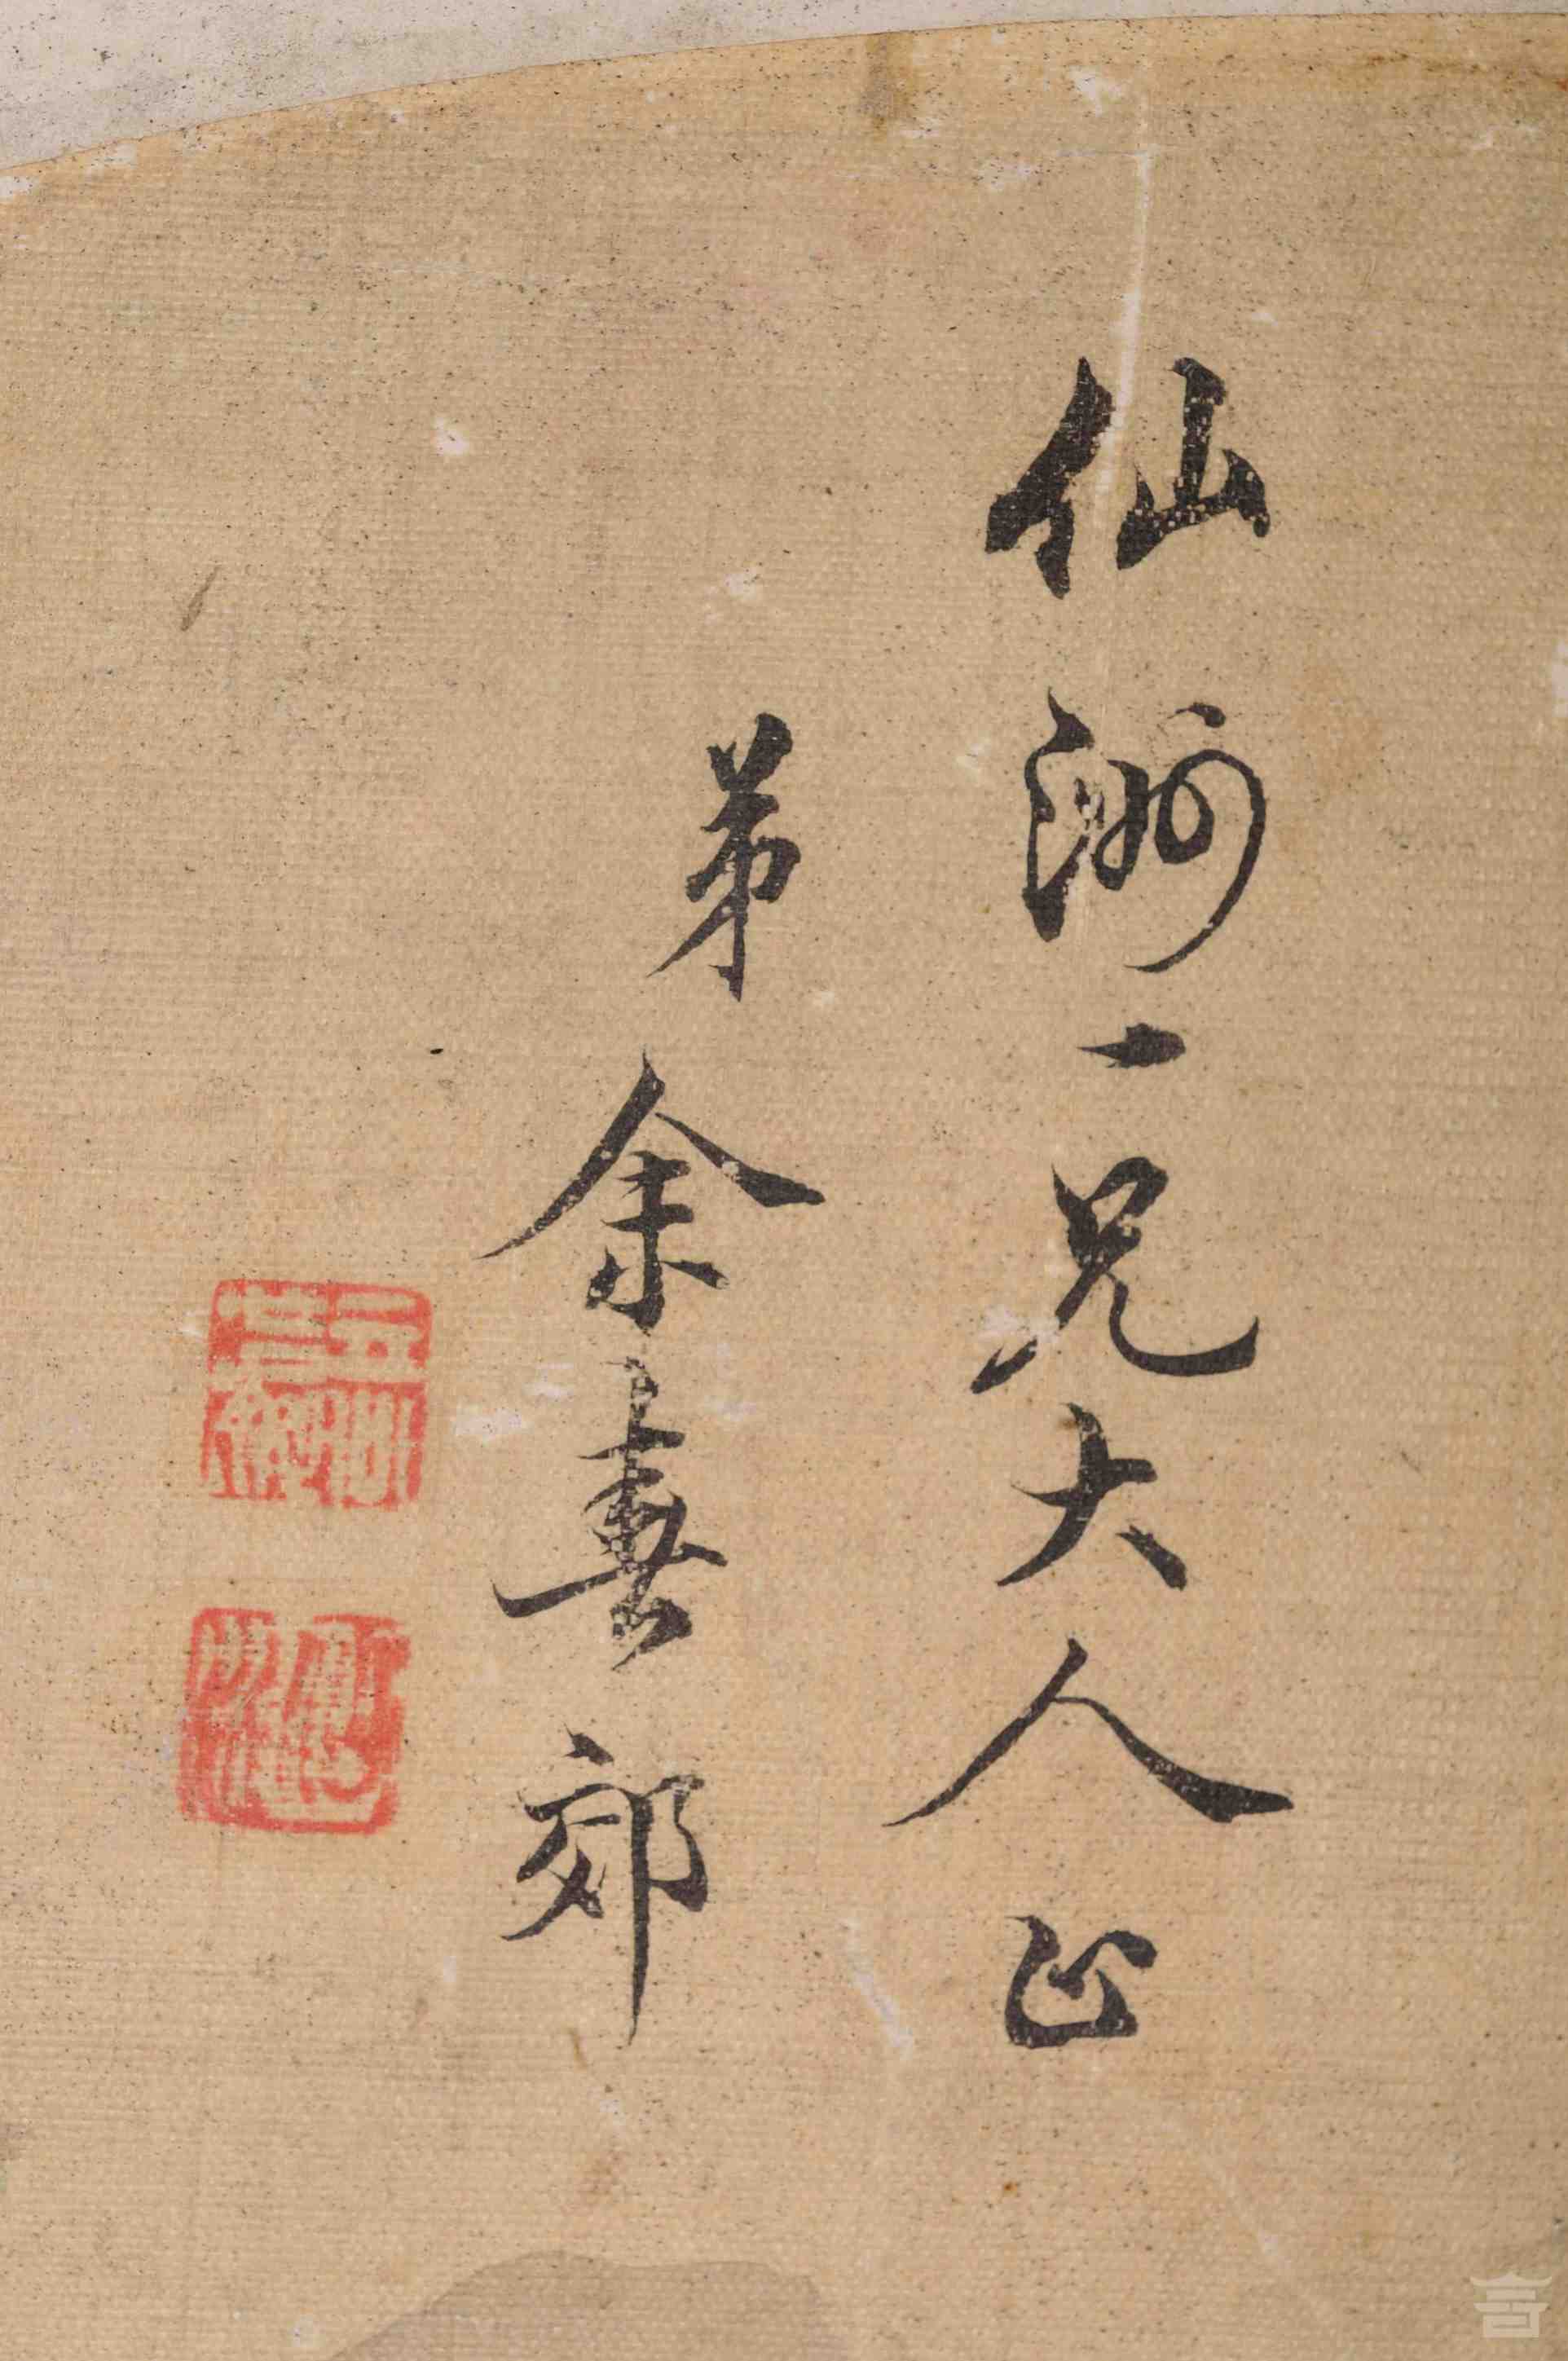 仙洲一兄大人正
弟余春郊